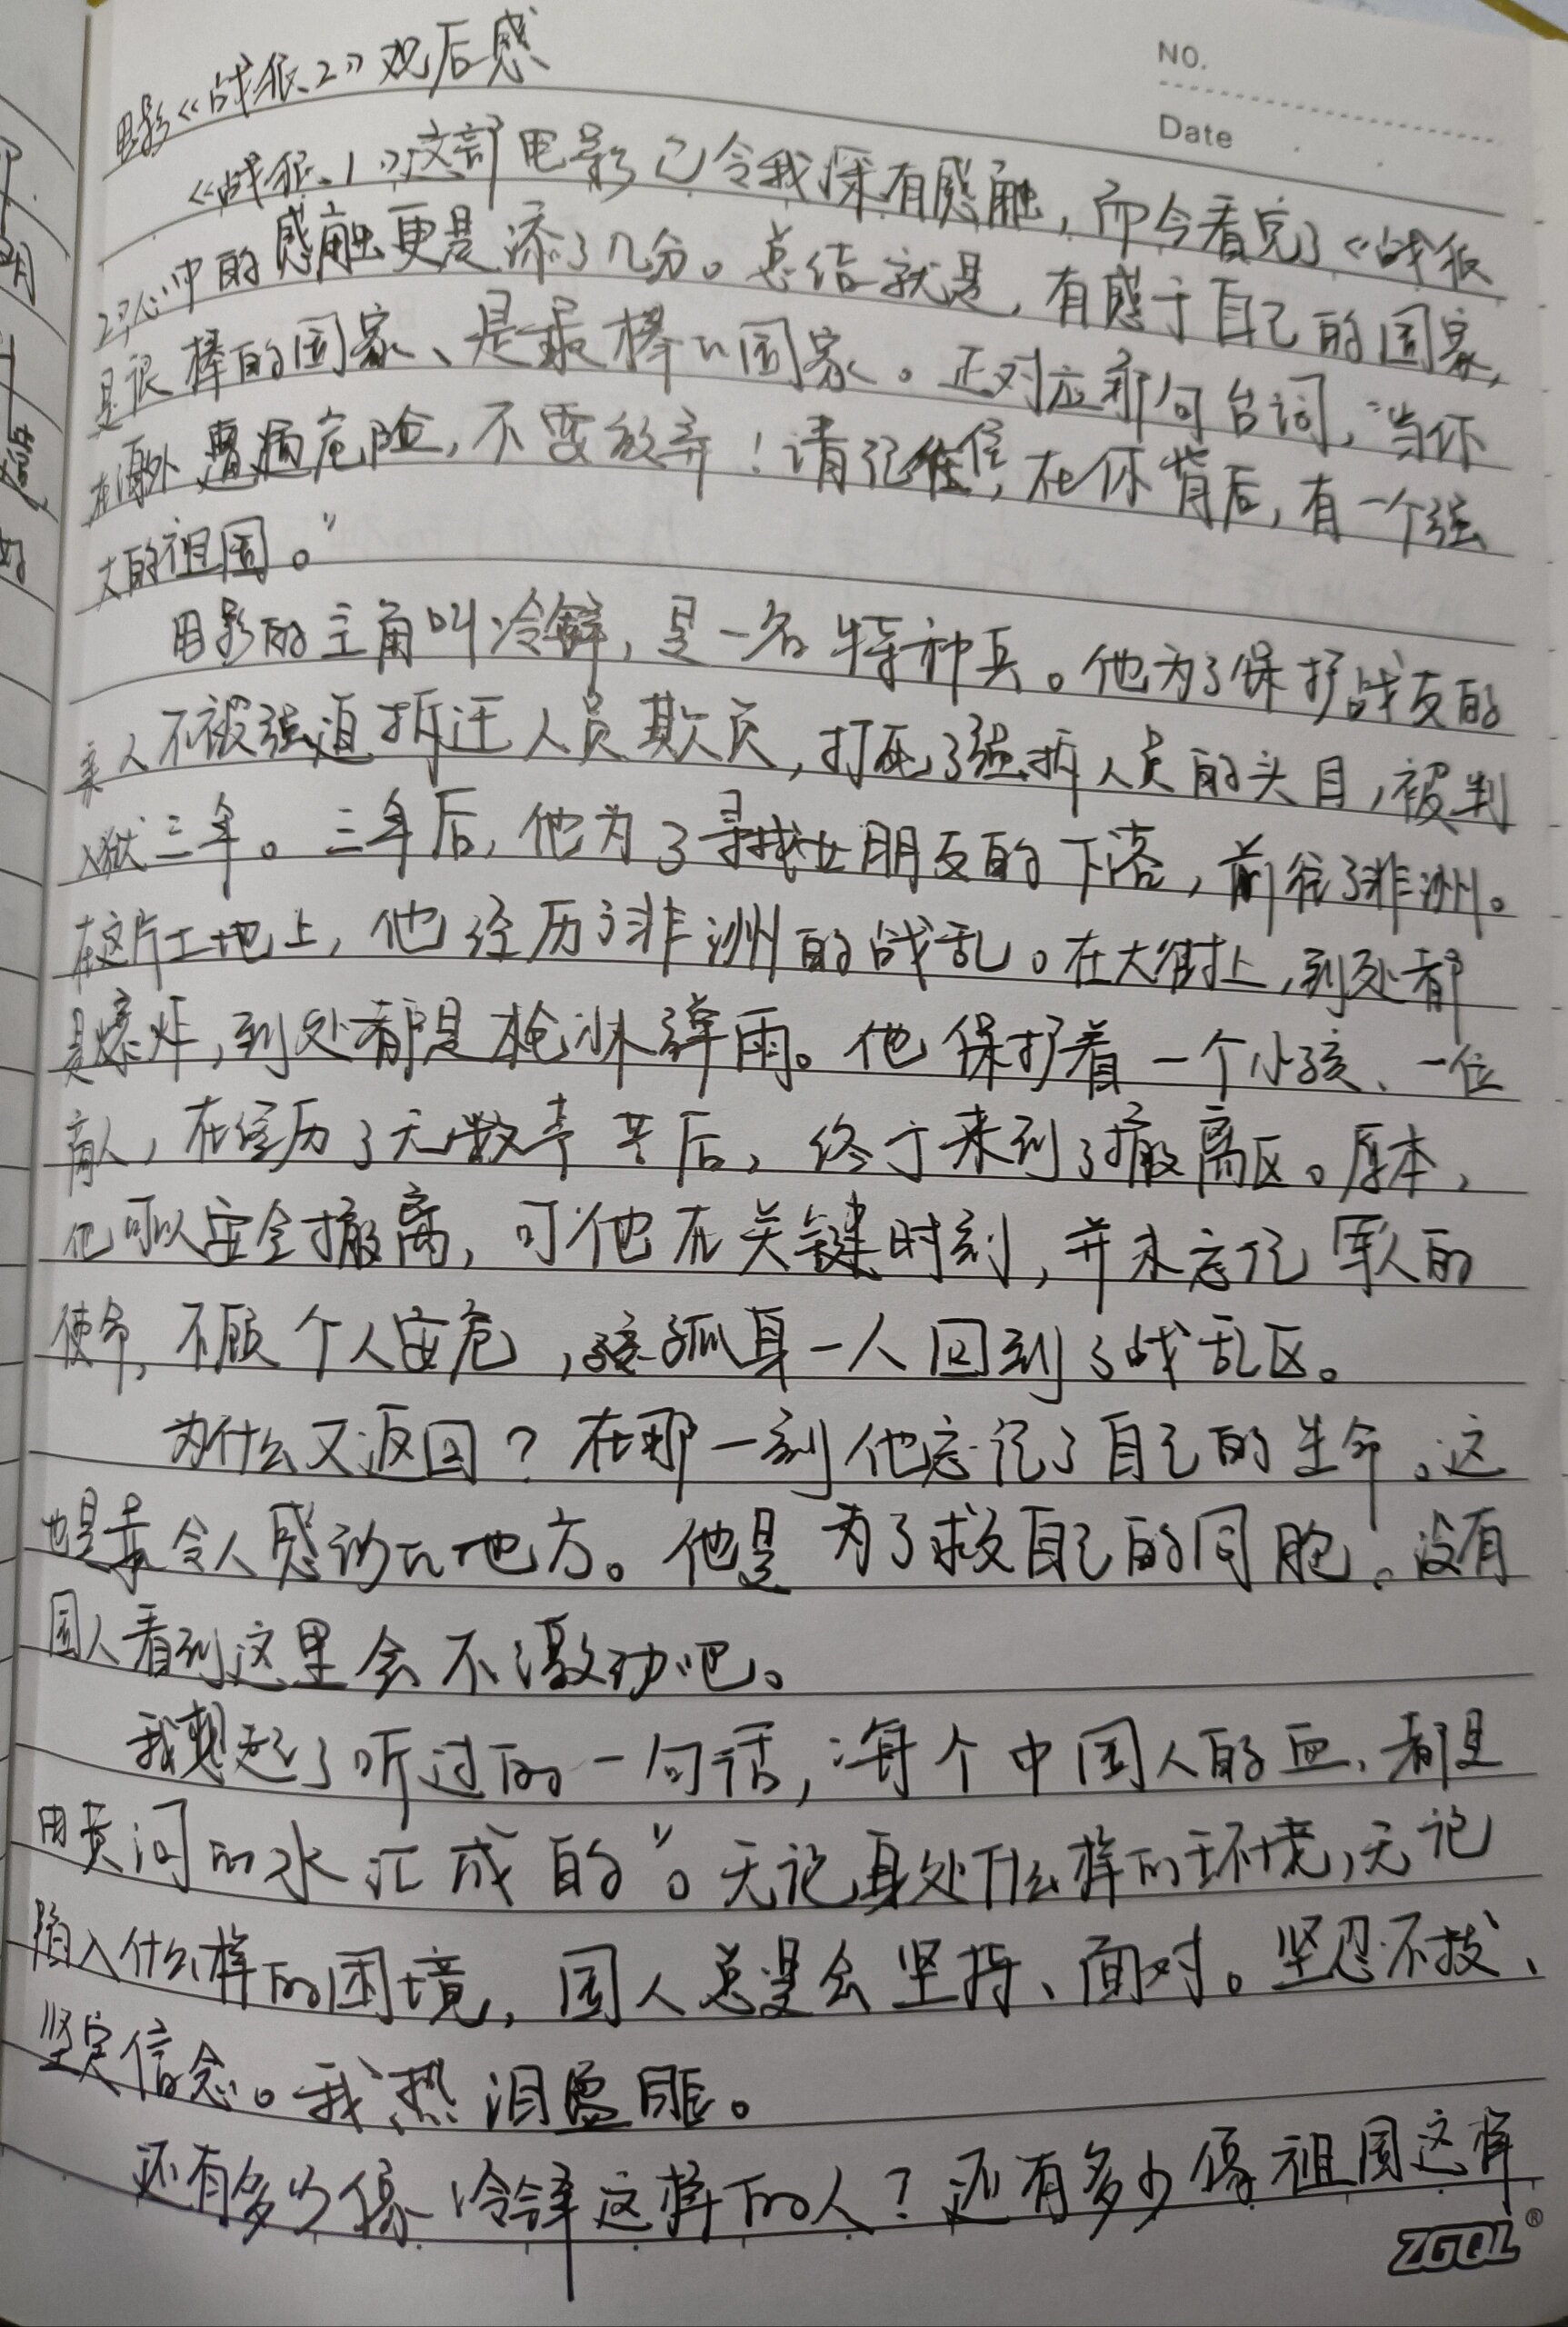 NO.
Date
电影《战狼2》观后感
《战狼1》这部电影已令我深有感触，而今看完了《战狼
2》心中的感触更是添了几分。总结就是，有感于自己的国家，
是很棒的国家、是最棒的国家。正对应那句台词，“当你
在海外遭遇危险，不要放弃！请记住，在你背后，有一个强
大的祖国。”
电影的主角叫冷锋，是一名特种兵。他为了保护战友的
亲人不被强迫拆迁人员欺负，打死了强拆人员的头目，被判
入狱三年。三年后，他为了寻找女朋友的下落，前往了非洲。
在这片土地上，他经历了非洲的战乱。在大街上，到处都
是爆炸，到处都是枪淋弹雨。他保护着一个小孩、一位
商人，在经历了无数辛苦后，终于来到了撤离区。原本，
他可以安全撤离，可他在关键时刻，并未忘记军人的
使命，不顾个人安危，孤身一人回到了战乱区。
为什么又返回？在那一刻他忘记了自己的生命。这
也是最令人感动的地方。他是为了救自己的同胞。没有
国人看到这里会不激动吧。
我想起了听过的一句话，“每个中国人的血、都是
用黄河的水汇成的”。无论身处什么样的环境，无论
陷入什么样的困境，国人总是会坚持、面对。坚忍不拔、
坚定信念。我热泪盈眶。
还有多少像冷锋这样的人？还有多少像祖国这样
ZGQL®